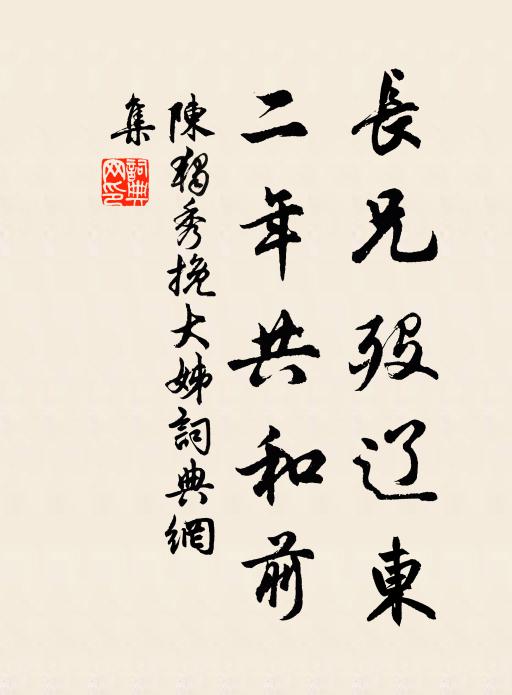 長兄殁辽東
二年共和前
陳獨秀挽大姊詞典網
集
詞典网印